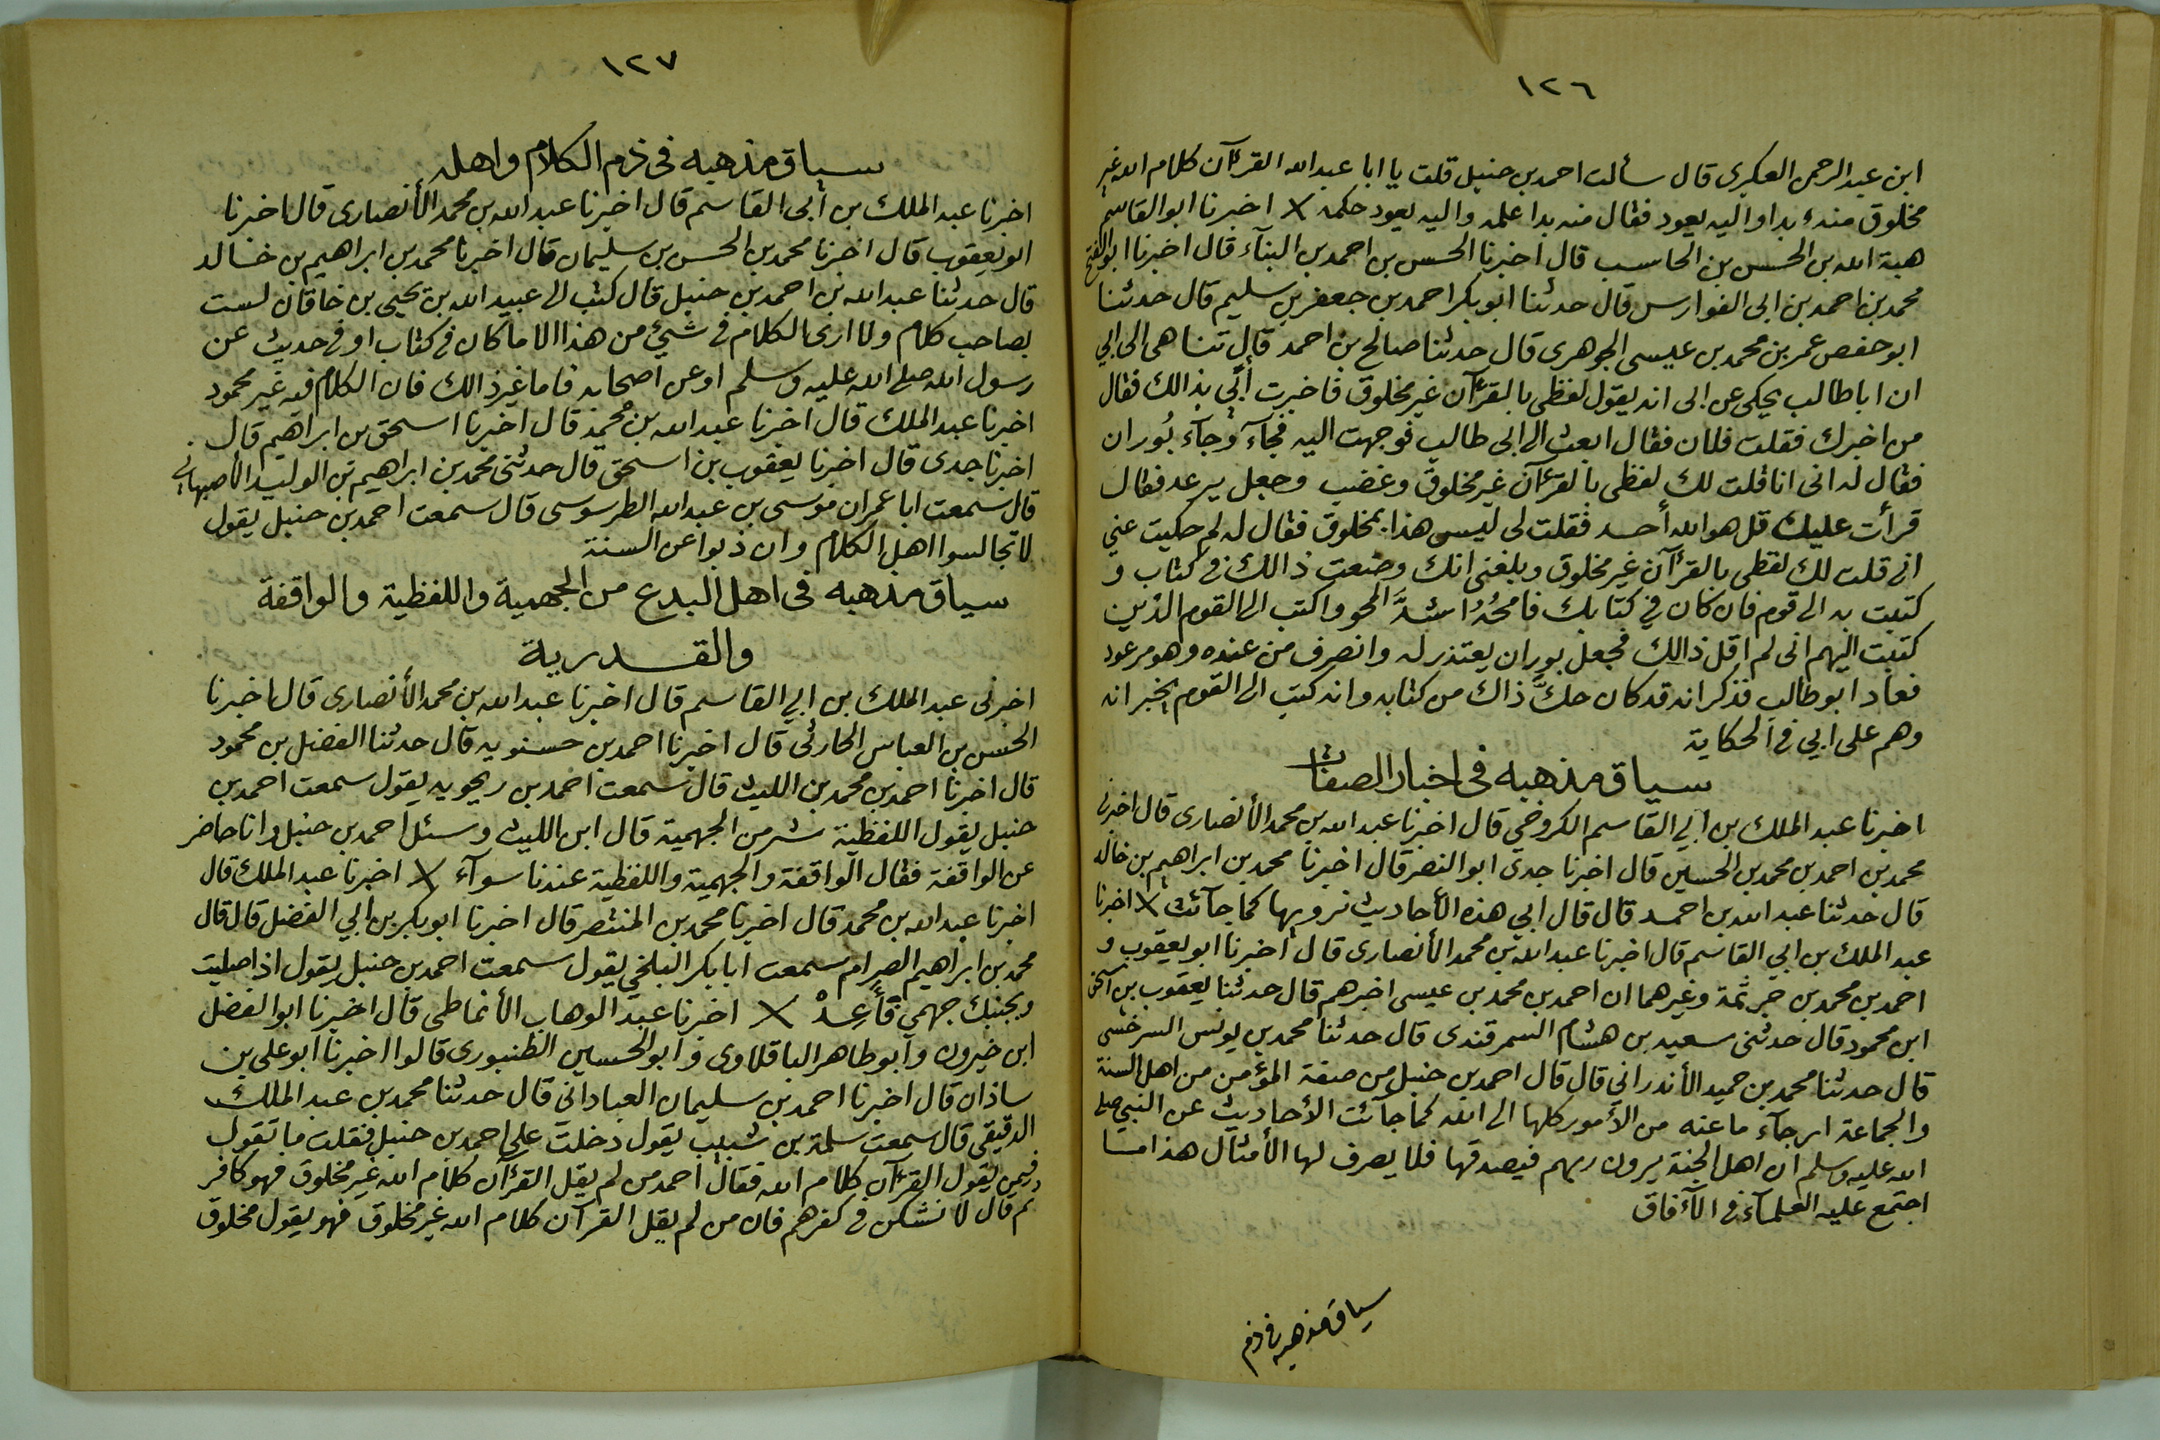 ١٢٦
ابن عبد الرحمن العكبرى قال سألت احمد بن حنبل قلت يا ابا عبد الله القرآن كلام الله غير
مخلوق منه بدا واليه يعود فقال منه بدا علمه واليه يعود حكمه X اخبرنا ابو القاسم
هبة الله بن الحسن بن الحاسب قال اخبرنا الحسن بن احمد بن البنآء قال اخبرنا ابو الفتح
محمد بن احمد بن ابى الفوارس قال حدثنا ابو بكر احمد بن جعفر بن سليم قال حدثنا
ابو حفص عمر بن محمد بن عيسى الجوهرى قال حدثنا صالح بن احمد قال تناهى الى ابي
ان ابا طالب يحكى عن ابى انه يقول لفظى بالقرآن غير مخلوق فاخبرت أبي بذالك فقال
من اخبرك فقلت فلان فقال ابعث الى ابى طالب فوجهت اليه فجآء وجآء بُوران
فقال له انى انا قلت لك لفظى بالقرآن غير مخلوق وغضب وجعل يرعد فقال
قرأت عليك قل هو الله أحد فقلت لى ليس هذا بمخلوق فقال له لم حكيت عني
انى قلت لك لفظى بالقرآن غير مخلوق وبلغنى انك وضعت ذالك فى كتاب و
كتبت به الى قوم فان كان في كتابك فامحُهُ اشدَّ المحو واكتب الى القوم الذين
كتبت اليهم انى لم اقل ذالك فجعل بوران يعتذر له وانصرف من عنده وهو مرعود
فعاد ابو طالب فذكر انه قد كان حكَّ ذاك من كتابه وانه كتب الى القوم يخبر انه
وهم على ابي فى الحكاية
سياق مذهبه فى اخبار الصفات
اخبرنا عبد الملك بن ابي القاسم الكروخي قال اخبرنا عبد الله بن محمد الأنصارى قال اخبرنا
محمد بن احمد بن محمد بن الحسين قال اخبرنا جدى ابو النصر قال اخبرنا محمد بن ابراهيم بن خالد
قال حدثنا عبد الله بن احمد قال قال ابي هذه الأحاديث نرويها كما جآئت X اخبرنا
عبد الملك بن ابي القاسم قال اخبرنا عبد الله بن محمد الأنصارى قال اخبرنا ابو يعقوب و
احمد بن محمد بن خبرثمة وغيرهما ان احمد بن محمد بن عيسى اخبرهم قال حدثنا يعقوب بن اسحق
ابن محمود قال حدثنى سعيد بن هشام السمرقندى قال حدثنا محمد بن يونس السرخسى
قال حدثنا محمد بن حميد الأندرانى قال قال احمد بن حنبل من صفة المؤمن من اهل السنة
والجماعة ارجآء ما عنه من الأمور كلها الى الله كما جآئت الأحاديث عن النبى صلى
الله عليه وسلم ان اهل الجنة يرون ربهم فيصدقها فلا يصرف لها الأمثال هذا مما
اجتمع عليه العلمآء فى الآفاق
سياق مذهبه فى ذم
١٢٧
سياق مذهبه فى ذم الكلام واهله
اخبرنا عبد الملك بن أبى القاسم قال اخبرنا عبد الله بن محمد الأنصارى قال اخبرنا
ابو يعقوب قال اخبرنا محمد بن الحسن بن سليمان قال اخبرنا محمد بن ابراهيم بن خالد
قال حدثنا عبد الله بن احمد بن حنبل قال كتب الى عبيد الله بن يحيى بن خاقان لست
بصاحب كلام ولا ارى الكلام فى شئ من هذا الا ما كان فى كتاب او فى حديث عن
رسول الله صلى الله عليه وسلم او عن اصحابه فاما غير ذالك فان الكلام فيه غير محمود
اخبرنا عبد الملك قال اخبرنا عبد الله بن محمد قال اخبرنا اسحق بن ابراهيم قال
اخبرنا جدى قال اخبرنا يعقوب بن اسحق قال حدثنى محمد بن ابراهيم بن الوليد الأصبهانى
قال سمعت ابا عمران موسى بن عبد الله الطرسوسى قال سمعت احمد بن حنبل يقول
لا تجالسوا اهل الكلام وان ذبوا عن السنة
سياق مذهبه فى اهل البدع من الجهمية واللفظية والواقفة
والقدرية
اخبرنى عبد الملك بن ابي القاسم قال اخبرنا عبد الله بن محمد الأنصارى قال اخبرنا
الحسن بن العباس الحارثى قال اخبرنا احمد بن حسنويه قال حدثنا الفضل بن محمود
قال اخبرنا احمد بن محمد بن الليث قال سمعت احمد بن ريحويه يقول سمعت احمد بن
حنبل يقول اللفظية شر من الجهمية قال ابن الليث وسئل احمد بن حنبل وانا حاضر
عن الواقفة فقال الواقفة والجهمية واللفظية عندنا سوآء X اخبرنا عبد الملك قال
اخبرنا عبد الله بن محمد قال اخبرنا محمد بن المنتصر قال اخبرنا ابو بكر بن ابي الفضل قال قال
محمد بن ابراهيم الصرام سمعت ابا بكر البلخي يقول سمعت احمد بن حنبل يقول اذا صليت
وبجنبك جهمي فأَعِدْ X اخبرنا عبد الوهاب الأنماطى قال اخبرنا ابو الفضل
ابن خيرون وابو طاهر الباقلاوى وابو الحسين الطنبورى قالوا اخبرنا ابو على بن
ساذان قال اخبرنا احمد بن سليمان العبادانى قال حدثنا محمد بن عبد الملك
الدقيقى قال سمعت سلمة بن شبيب يقول دخلت على احمد بن حنبل فقلت ما تقول
فيمن يقول القرآن كلام الله فقال احمد من لم يقل القرآن كلام الله غير مخلوق فهو كافر
ثم قال لا نشكن فى كفرهم فان من لم يقل القرآن كلام الله غير مخلوق فهو يقول مخلوق